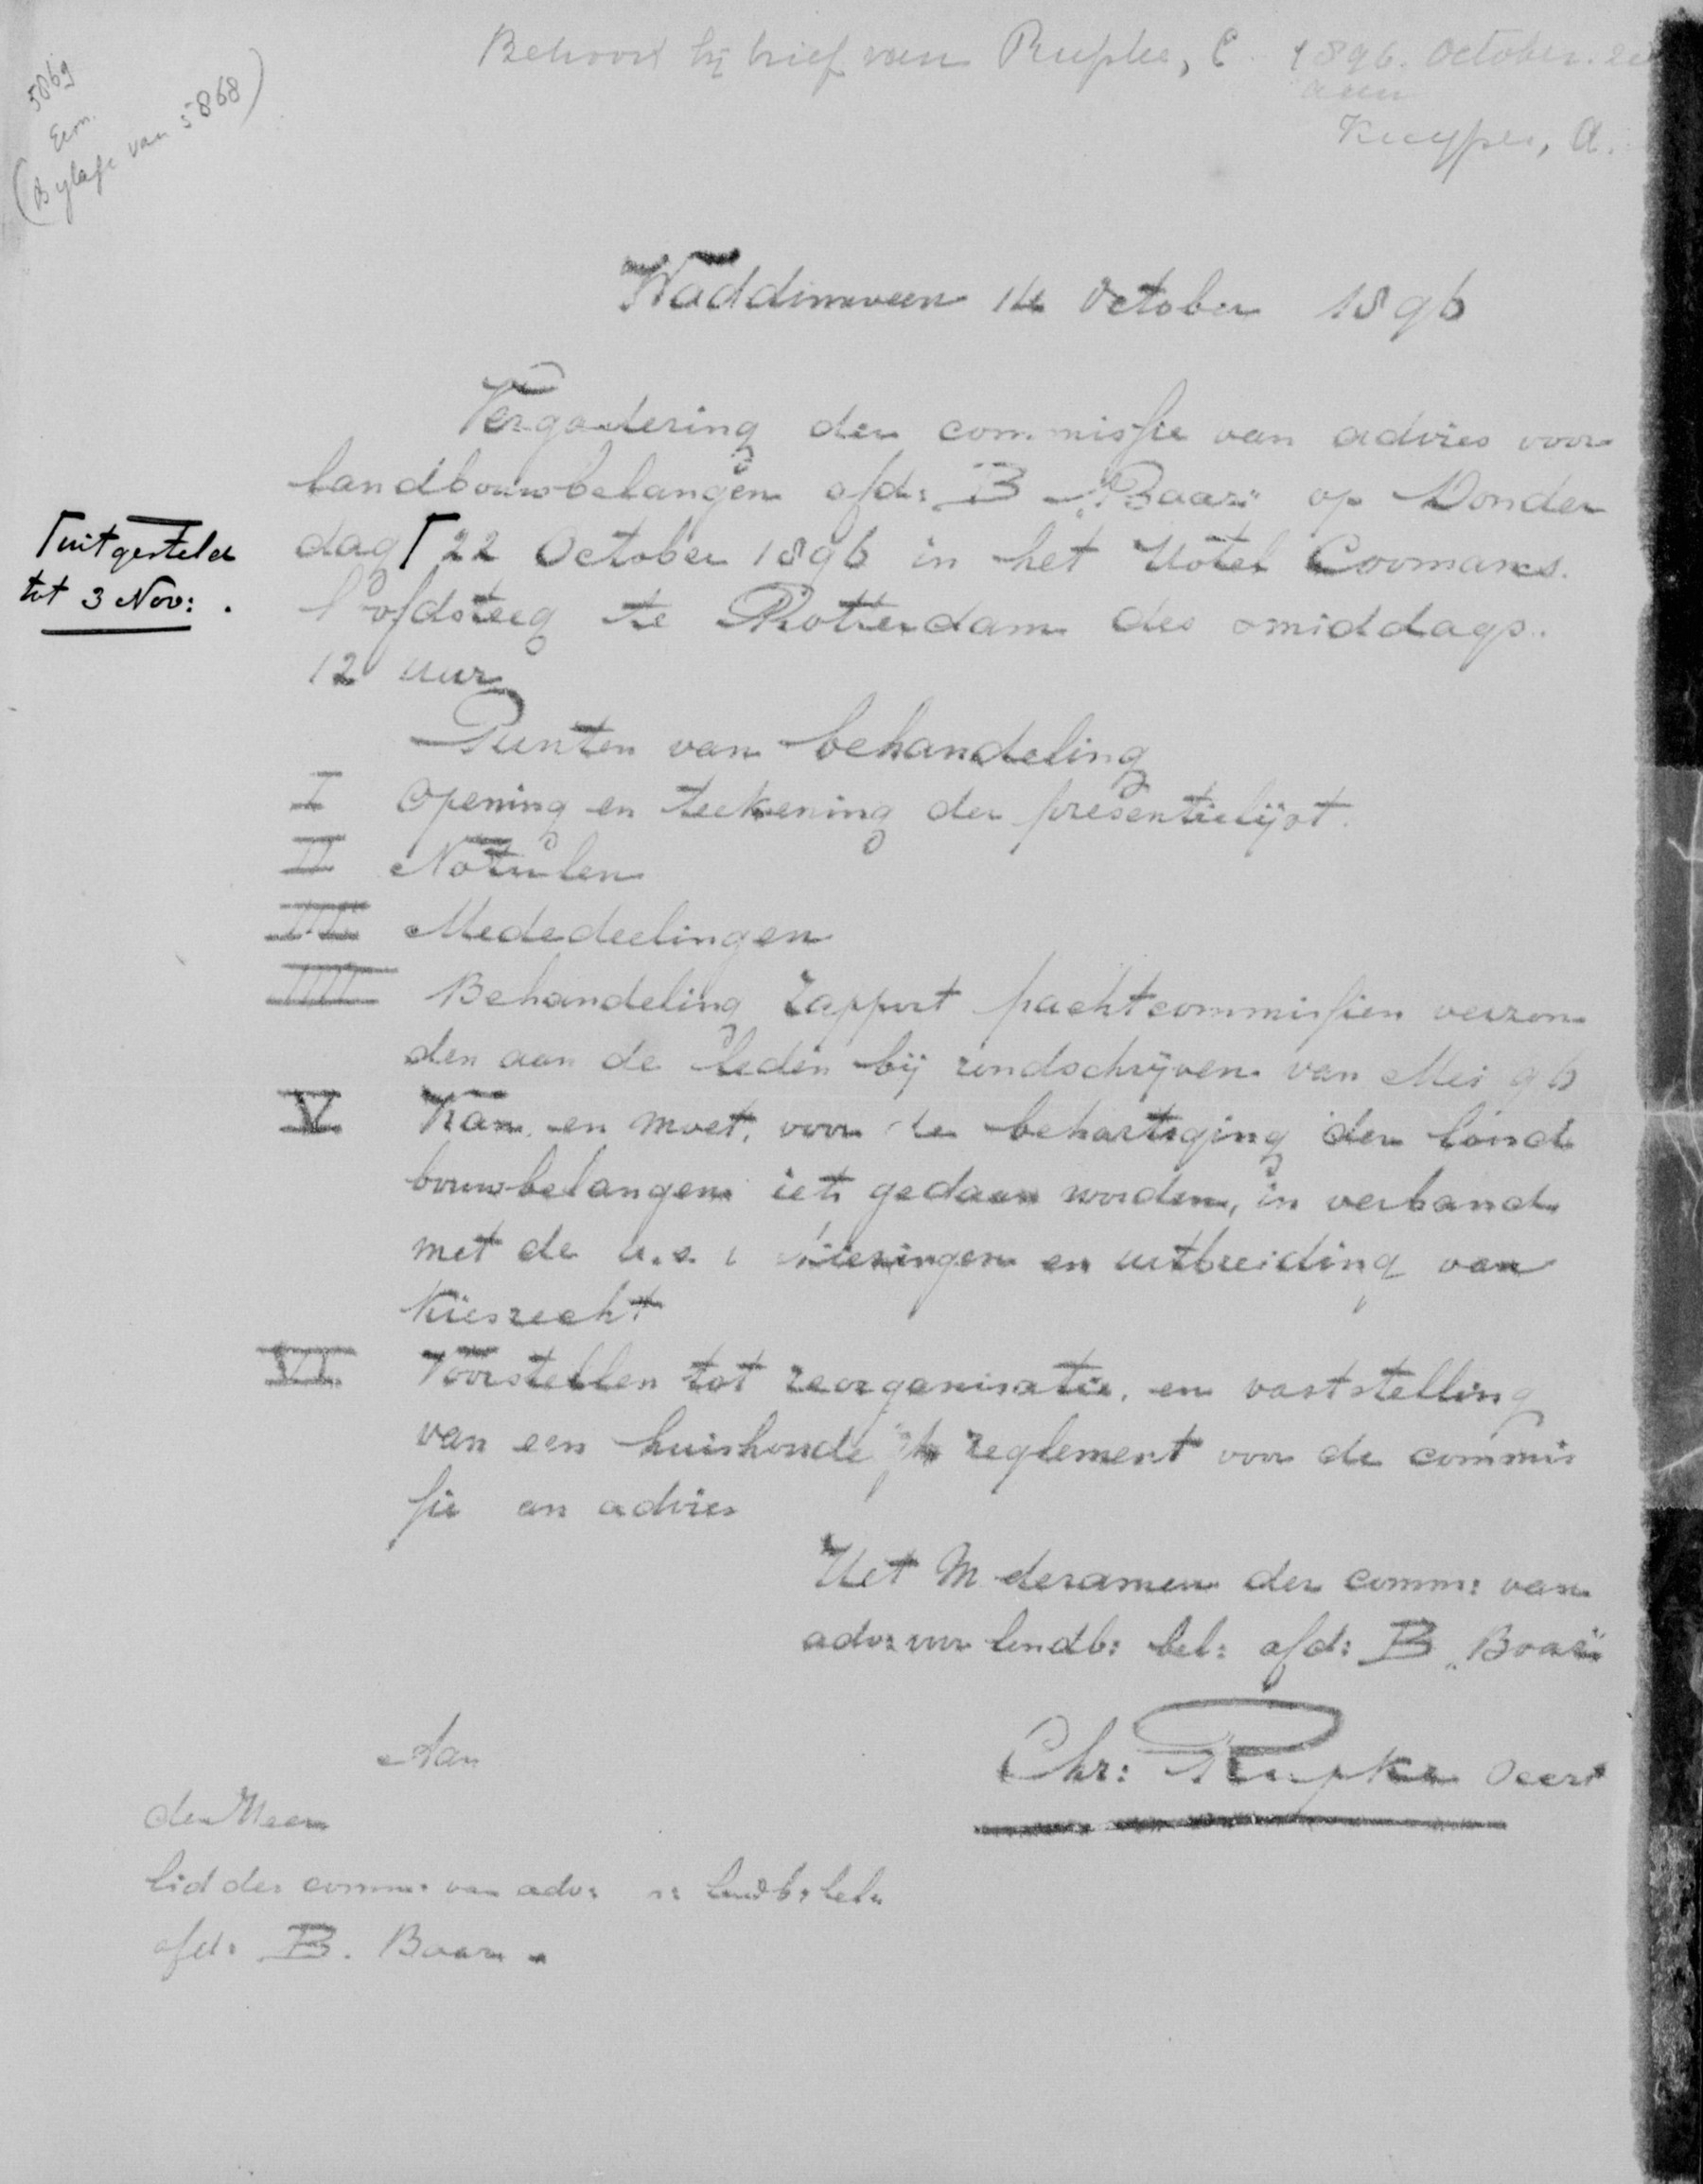 Behoort bij brief van Rupke, C. 1896. October. 20
aan
Kuyper, A.
5869
(Bylage van 5868)
Waddinxveen 14 October 1896
Vergadering der commissie van advies voor
landbouwbelangen afd: B „Baar" op Donder
dag ⌈ 22 October 1896 in het Hôtel Coomans.
Hofdsteeg te Rotterdam des smiddags.
12 uur
⌈ uitgesteld
tot 3 Nov: .
Punten van behandeling
I Opening en teekening der presentielijst.
II Notulen
III Mededeelingen
IIII Behandeling rapport pachtcommissien verzon
den aan de leden bij rondschrijven van Mei 96
V Kan en moet, voor de behartiging der land
bouwbelangen iets gedaan worden, in verband
met de a.s. en uitbreiding van
Kiesrecht
VI Voorstellen tot reorganisatie, en vaststelling
van een reglement voor de commis
sie an advies
Het M deramen der comm: van
adv: voor landb: bel: afd: B „Baar"
Chr: Rupke Secrt
Aan
den Heer
lid der comm: van adv: landb: bel:
afd: B. Baar